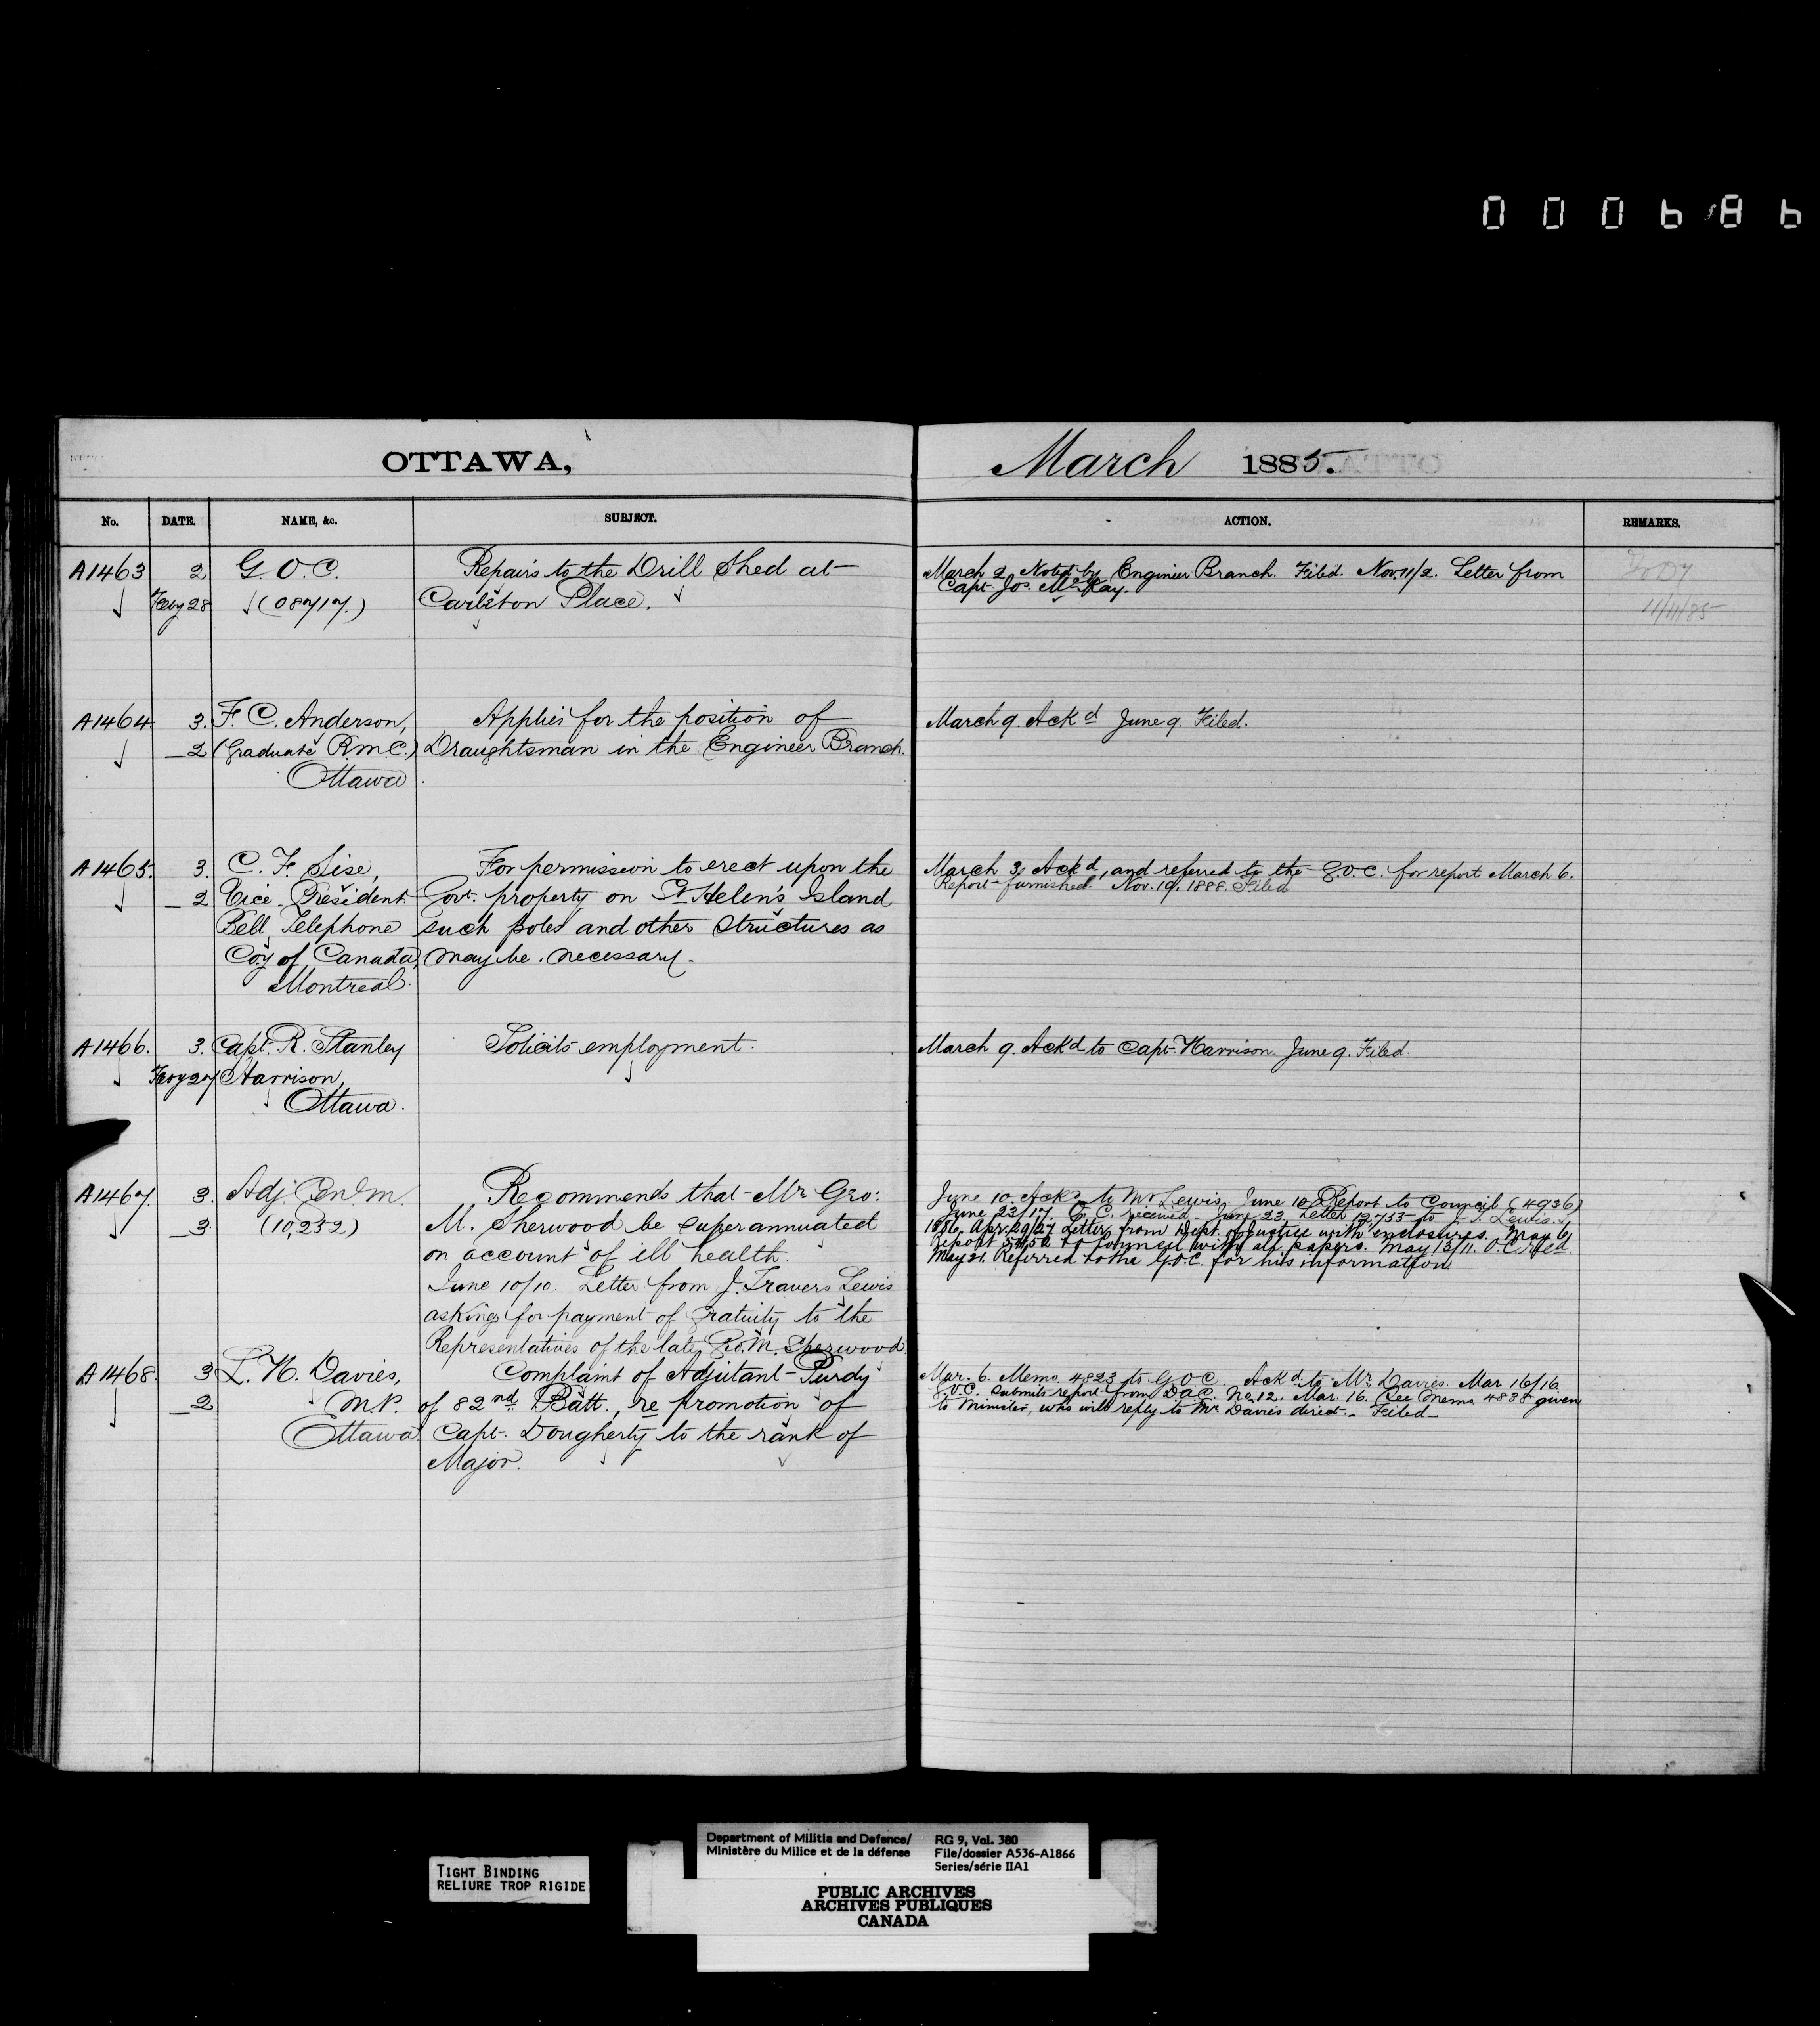 000686
OTTAWA,
March 1885.
No. DATE. NAME, &c. SUBJECT. ACTION. REMARKS.
A1463 2 G.O.C. Repairs to the Drill Shed at
Feby 28 (08717.) Carleton Place.
March 2. Noted by Engineer Branch. Filed. Nov. 11/2. Letter from
Capt. Jos. McKay.
11/11/85
A1464. 3. F. C. Anderson, Applies for the position of
2 (Graduate R.M.C.) Draughtsman in the Engineer Branch.
Ottawa
March 9. Ackd June 9. Filed.
A1465. 3. C. F. Sise, For permission to erect upon the
2 Vice President Govt. property on St Helen's Island
Bell Telephone such poles and other structures as
Coy of Canada, may be necessary.
Montreal.
March 3, Ackd, and referred to the G.O.C. for report March 6.
Report furnished. Nov. 19. 1888. Filed
A1466. 3. Capt. R. Stanley Solicits employment.
Feby 27 Harrison,
Ottawa.
March 9. Ackd to Capt. Harrison. June 9. Filed.
A1467. 3. Adj. Genl M. Recommends that Mr Geo:
3. (10,252) M. Sherwood be superannuated
on account of ill health.
June 10/10. Letter from J. Travers Lewis
asking for payment of gratuity to the
Representatives of the late Geo. M. Sherwood.
June 10. Ackd to Mr Lewis. June 10. Report to Council (4936)
June 23/17. O.C. received. June 23. Letter 12,733 to J. T. Lewis.
1886. Apr. 29/27 Letter from Dept. of Justice with enclosures. May 6
Report to Council with all papers. May 13/11. O.C.
May 21. Referred to the G.O.C. for his information
A1468. 3 L. H. Davies, Complaint of Adjutant Purdy
2 M.P. of 82nd Batt., re promotion of
Ottawa. Capt. Dougherty to the rank of
Major.
Mar. 6. Memo. 4823 to G.O.C. Ackd to Mr Davies. Mar 16/16
G.O.C. submits report from D.A.G. No. 12. Mar. 16. See Memo 4838 given
to Minister, who will reply to Mr Davies direct. Filed
TIGHT BINDING
RELIURE TROP RIGIDE
Department of Militia and Defence/
Ministère du Milice et de la défense
RG 9, Vol. 380
File/dossier A536-A1866
Series/série IIA1
PUBLIC ARCHIVES
ARCHIVES PUBLIQUES
CANADA